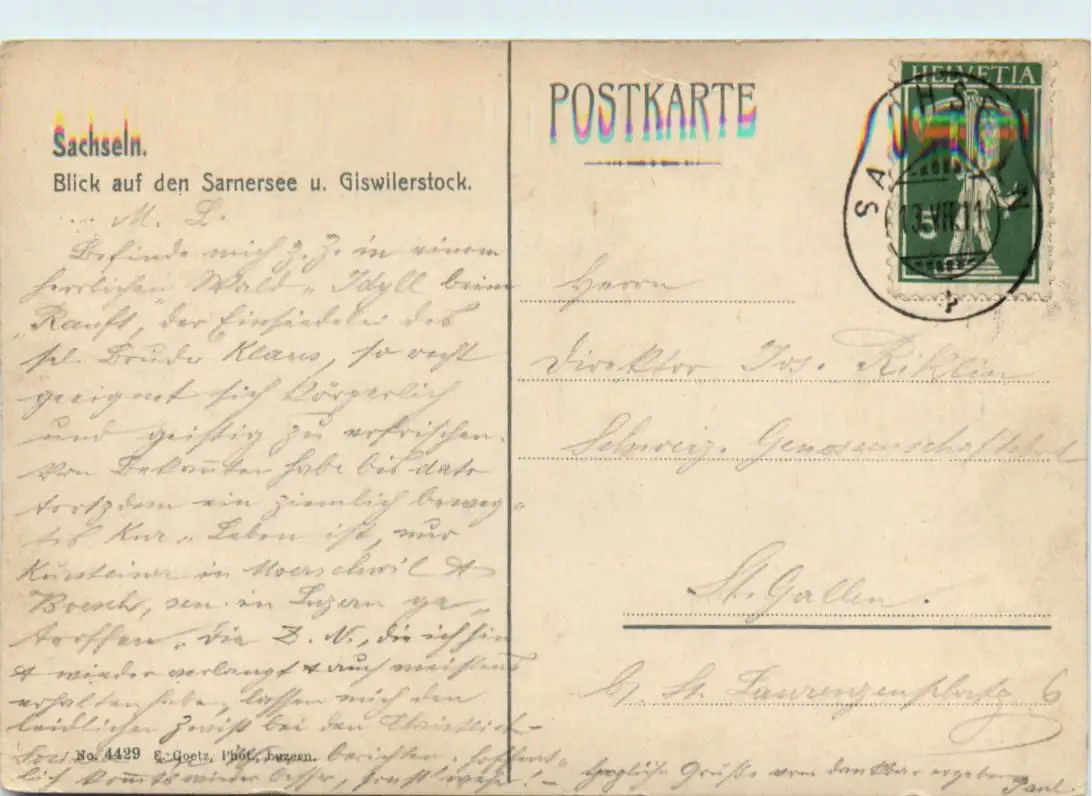 Sachseln.
Blick auf den Sarnersee u. Giswilerstock.
M. L.
Befinde mich z. Z. in einem
herrlichen Wald-Idyll beim
"Ranft", der Einsiedelei des
sel. Bruder Klaus, so recht
geeignet sich körperlich
und geistig zu erfrischen.
Von Bekannten habe bis dato
trotzdem ein ziemlich beweg-
tes Kur-Leben ist, nur
in Moerschwil &
Boesch, sen. in Luzern ge-
troffen. Die Z. N., die ich hin
& wieder verlangt & auch meistens
erhalten habe, lassen mich den
leidlichen Zwist bei den Christlich-
berichten, hoffent-
lich kommts wieder besser, sonst wehe! -
No. 4429 E. Goetz, Phot., Luzern.
POSTKARTE
HELVETIA
5
SACHSELN
13.VII.11
Herrn
Direktor Jos. Riklin
Schweiz. Genossenschaftsbk
St. Gallen.
St. Laurenzenplatz 6
Herzliche Grüsse vom dankbar ergebenen
Paul.